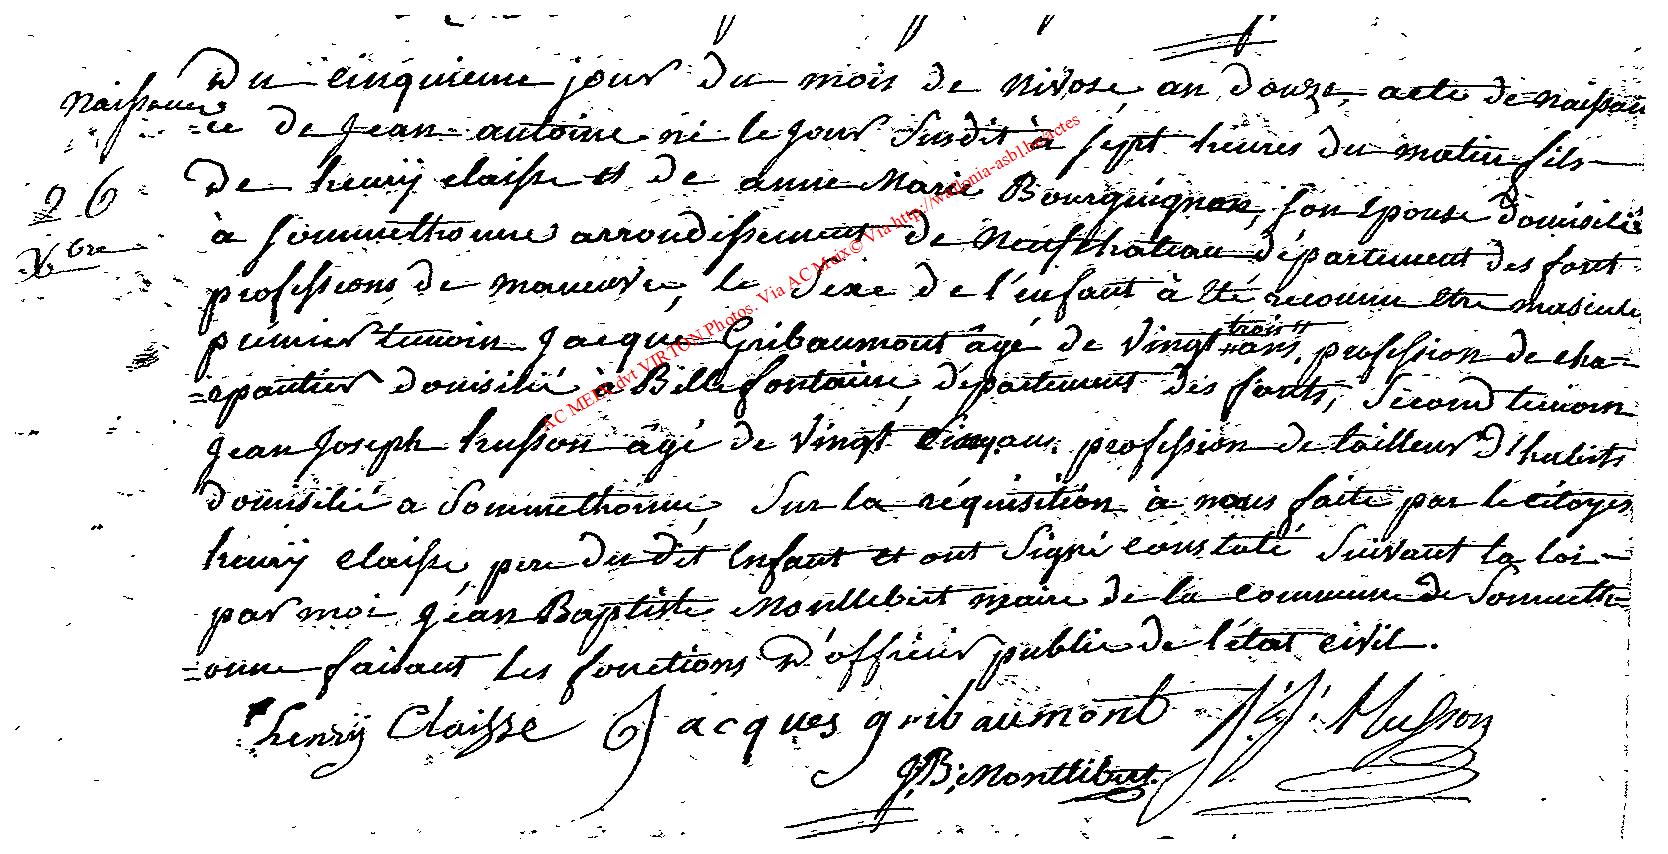 Naissance
26
Xbre
Du cinquieme jour du mois de nivose, an douze, acte de naissan
=ce de jean antoine né le jour susdit à sept heures du matin fils
de henrÿ claisse et de anne Marie Bourguignon, son epouse domisilié
à sommethonne arrondissement de neufchateau département des foret
professions de maneuvre, le sexe de l'enfant à été reconnu etre mascule
prémier temoin jacque Gribaumont âgé de vingt trois ans, profession de cha=
=rpantier domisilié à Bellefontaine, département des forets, second temoin
jean joseph husson âgé de vingt cinq ans, profession de tailleur d'habits
domisilié a sommethonne, sur la réquisition à nous faite par le citoyen
henrÿ claisse, pere du dit enfant et ont signé constaté suivant la loi
par moi jéan Baptiste Montlebert maire de la commune de sommeth=
=onne faisant les fonctions d'officier public de l'état civil.
henrÿ Claisse jacques gribaumont j: j: Husson
J: B: Montlibert.
AC MEIX dvt VIRTON Photos. Via AC Meix© Via http://wallonia-asbl.be/actes